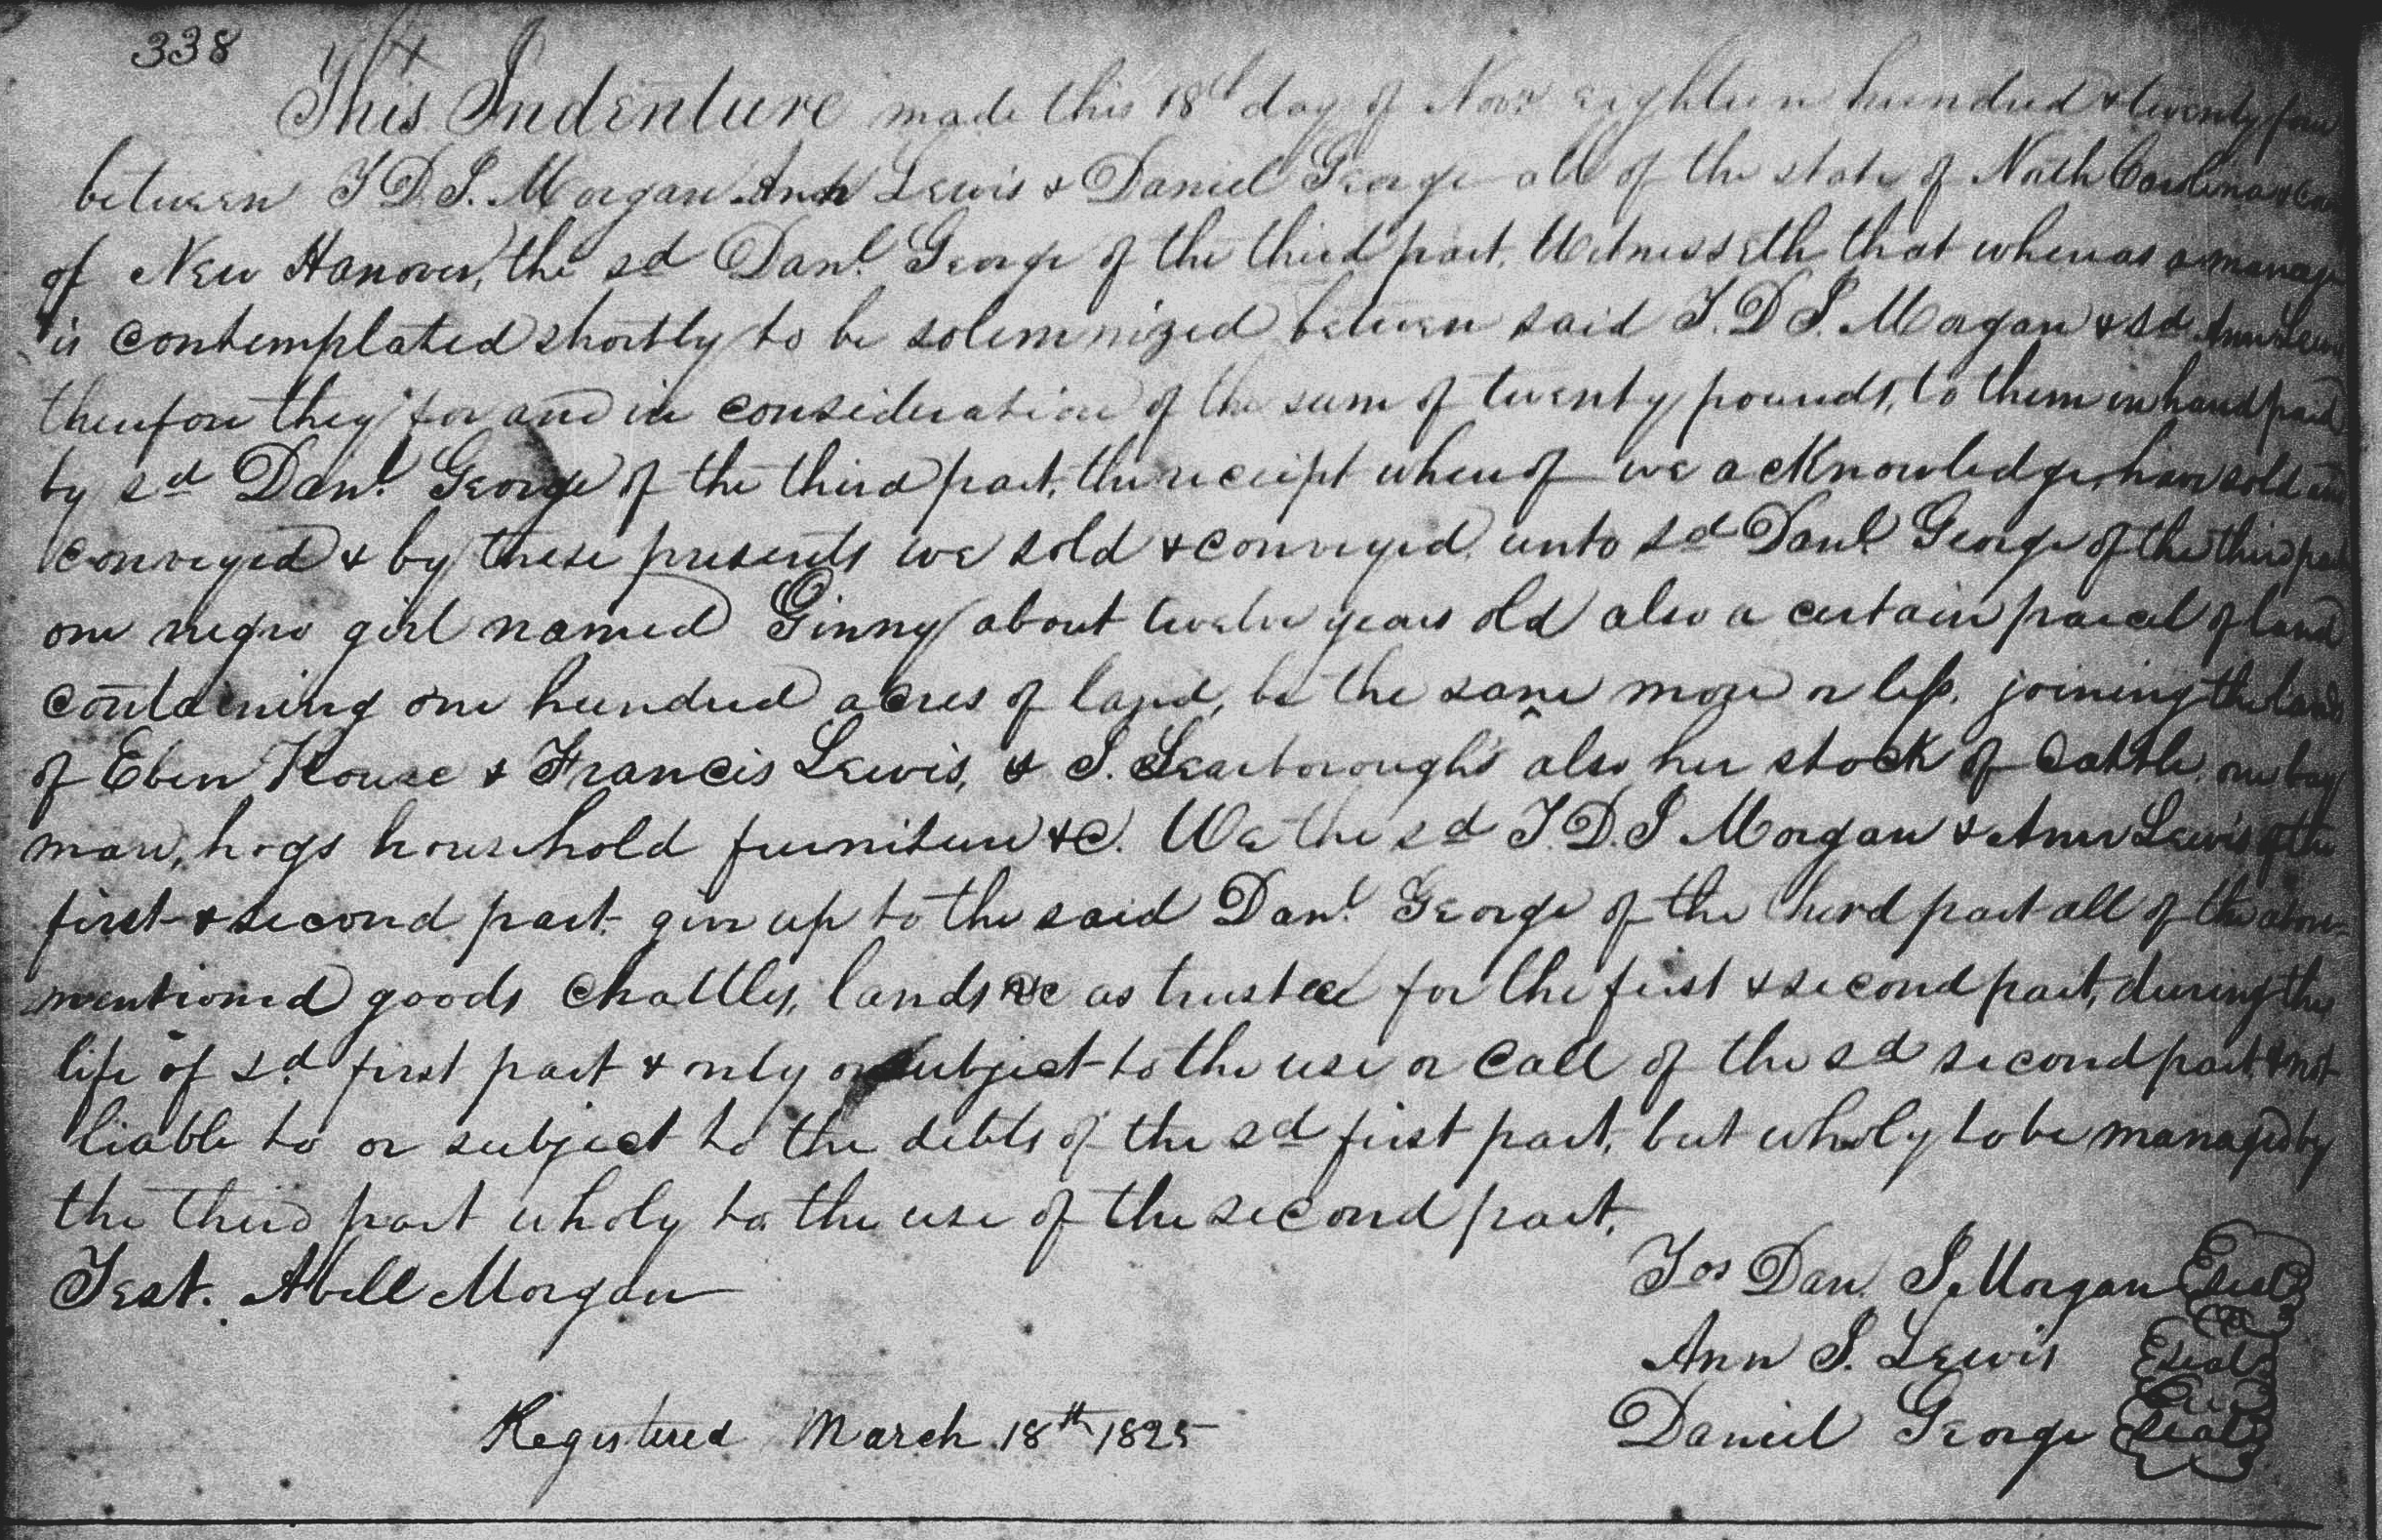 338
This Indenture made this 18th day of Novr eighteen hundred & twenty four
between J D. S. Morgan Ann Lewis & Daniel George all of the state of North Carolina &
of New Hanover, the sd Danl. George of the third part. Witnesseth that whereas a marriage
is contemplated shortly to be solemnized between said J. D S. Morgan & sd Ann Lewis
therefore they for and in consideration of the sum of twenty pounds, to them in hand paid
by sd Danl. George of the third part, the receipt whereof we acknowledge, have sold and
conveyed & by these presents we sold & conveyed unto sd Danl. George of the third part
one negro girl named Ginny about twelve years old also a certain parcel of land
containing one hundred acres of land, be the same more or less, joining the lands
of Eben House & Francis Lewis, & S. Scarborough's also her stock of Cattle, one bay
mare, hogs household furniture &C. We the sd J. D. S Morgan & Ann Lewis of the
first & second part give up to the said Danl. George of the third part all of the above-
mentioned goods Chattles, lands &c as trustee for the first & second part, during the
life of sd. first part & only subject to the use or Call of the sd second part & not
liable to or subject to the debts of the sd first part, but wholy to be managed by
the third part wholy to the use of the second part.
Test. Abell Morgan
Jos Dan. S. Morgan Seal
Ann S. Lewis Seal
Daniel George Seal
Registered March 18th 1825